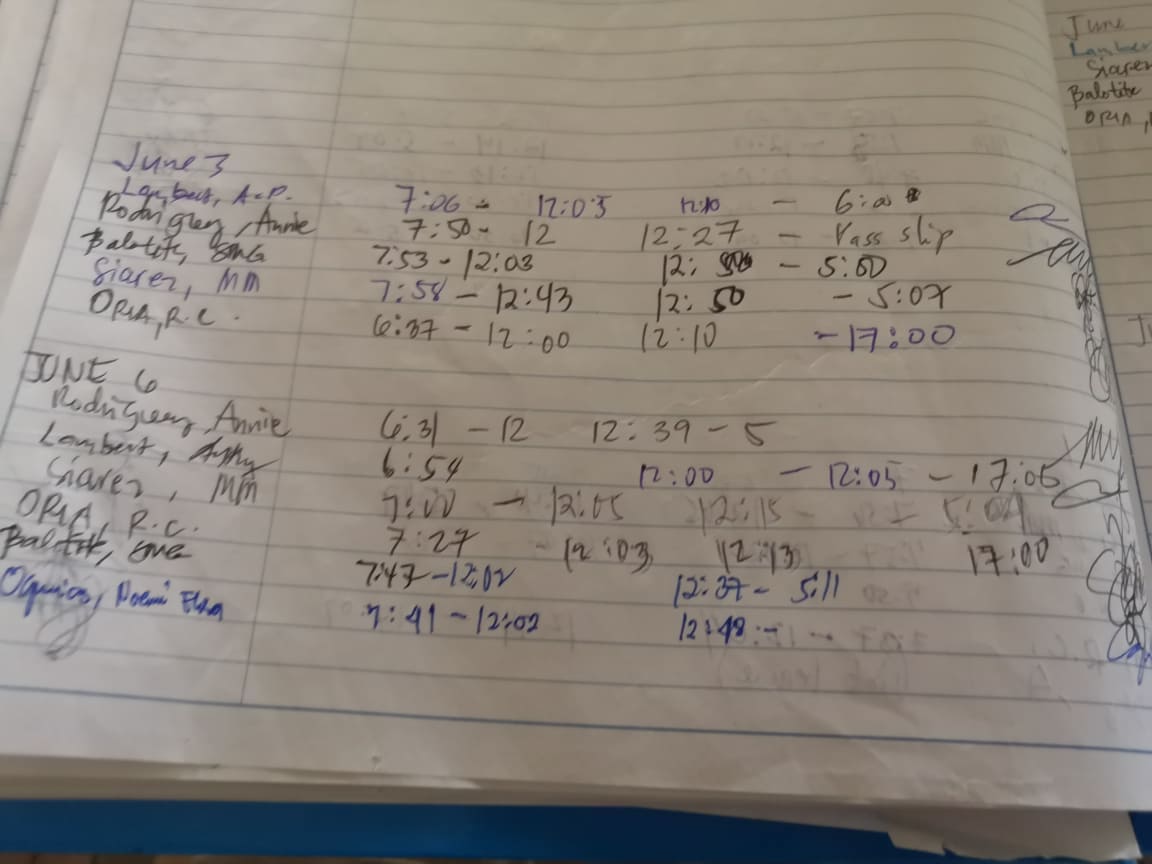 June 3
Lambert, A.P. 7:06 - 12:05 12:10 - 6:00
Rodriguez, Annie 7:50 - 12 12:27 - Pass slip
Balotite, 7:53 - 12:03 12: - 5:00
Siarez, MM 7:58 - 12:43 12:50 - 5:07
ORIA, R.C. 6:37 - 12:00 12:10 - 17:00
JUNE 6
Rodriguez, Annie 6:31 - 12 12:39 - 5
Lambert, 6:54 12:00 - 12:05 - 17:05
Siarez, MM 7:00 - 12:05 12:15 -
ORIA, R.C. 7:27 - 12:03 12:13 17:00
Balotite, 7:47 - 12:02 12:37 - 5:11
Noemi 7:41 - 12:02 12:48 : -
June
Lamber
Siarez
Balotite
ORIA,